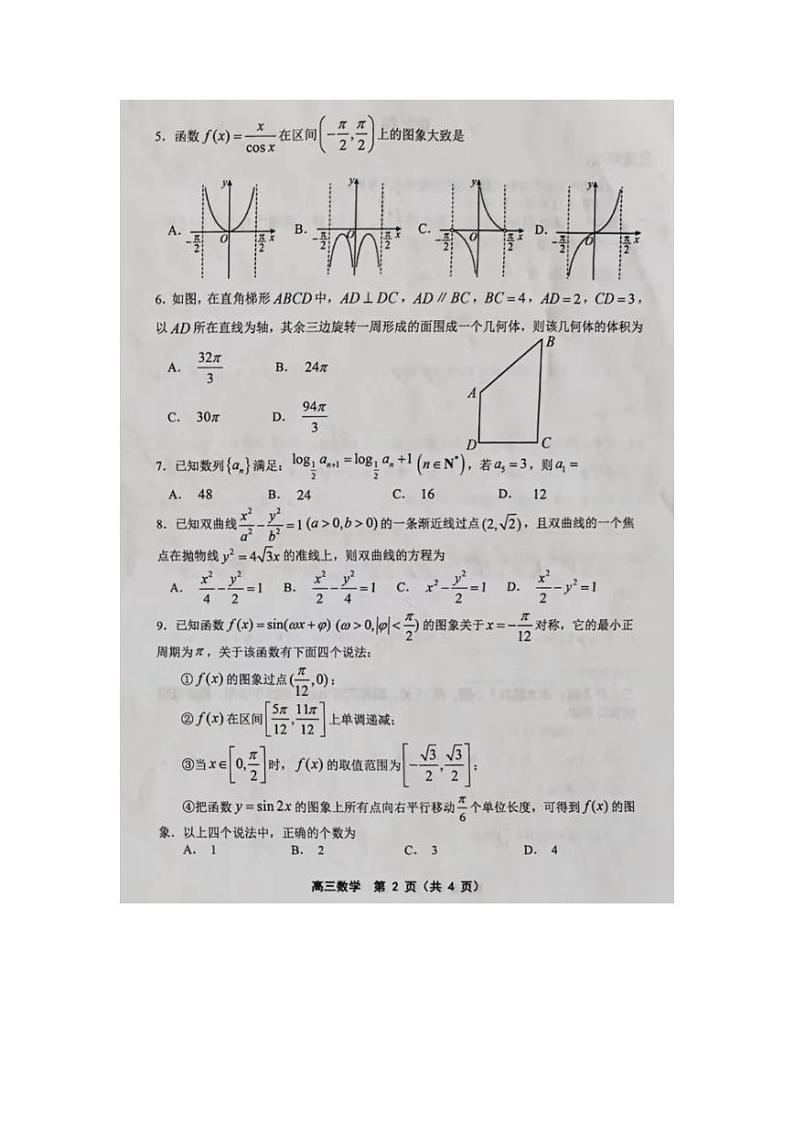 5. 函数 f(x)=x/cos x 在区间(-π/2, π/2)上的图象大致是
A. B. C. D.
y y y y
O x O x O x O x
-π/2 π/2 -π/2 π/2 -π/2 π/2 -π/2 π/2
6. 如图,在直角梯形 ABCD 中,AD⊥DC,AD∥BC,BC=4,AD=2,CD=3,
以 AD 所在直线为轴,其余三边旋转一周形成的面围成一个几何体,则该几何体的体积为
A. 32π/3 B. 24π
C. 30π D. 94π/3
B
A
D C
7. 已知数列{aₙ}满足:log_{1/2} a_{n+1}=log_{1/2} a_n+1 (n∈N*),若 a₅=3,则 a₁=
A. 48 B. 24 C. 16 D. 12
8. 已知双曲线 x²/a²-y²/b²=1 (a>0,b>0) 的一条渐近线过点(2,√2),且双曲线的一个焦
点在抛物线 y²=4√3x 的准线上,则双曲线的方程为
A. x²/4-y²/2=1 B. x²/2-y²/4=1 C. x²-y²/2=1 D. x²/2-y²=1
9. 已知函数 f(x)=sin(ωx+φ) (ω>0,|φ|<π/2) 的图象关于 x=-π/12 对称,它的最小正
周期为π,关于该函数有下面四个说法:
① f(x) 的图象过点(π/12,0);
② f(x) 在区间[5π/12, 11π/12]上单调递减;
③当 x∈[0,π/2]时,f(x) 的取值范围为[-√3/2, √3/2];
④把函数 y=sin 2x 的图象上所有点向右平行移动π/6个单位长度,可得到 f(x) 的图
象.以上四个说法中,正确的个数为
A. 1 B. 2 C. 3 D. 4
高三数学 第 2 页(共 4 页)